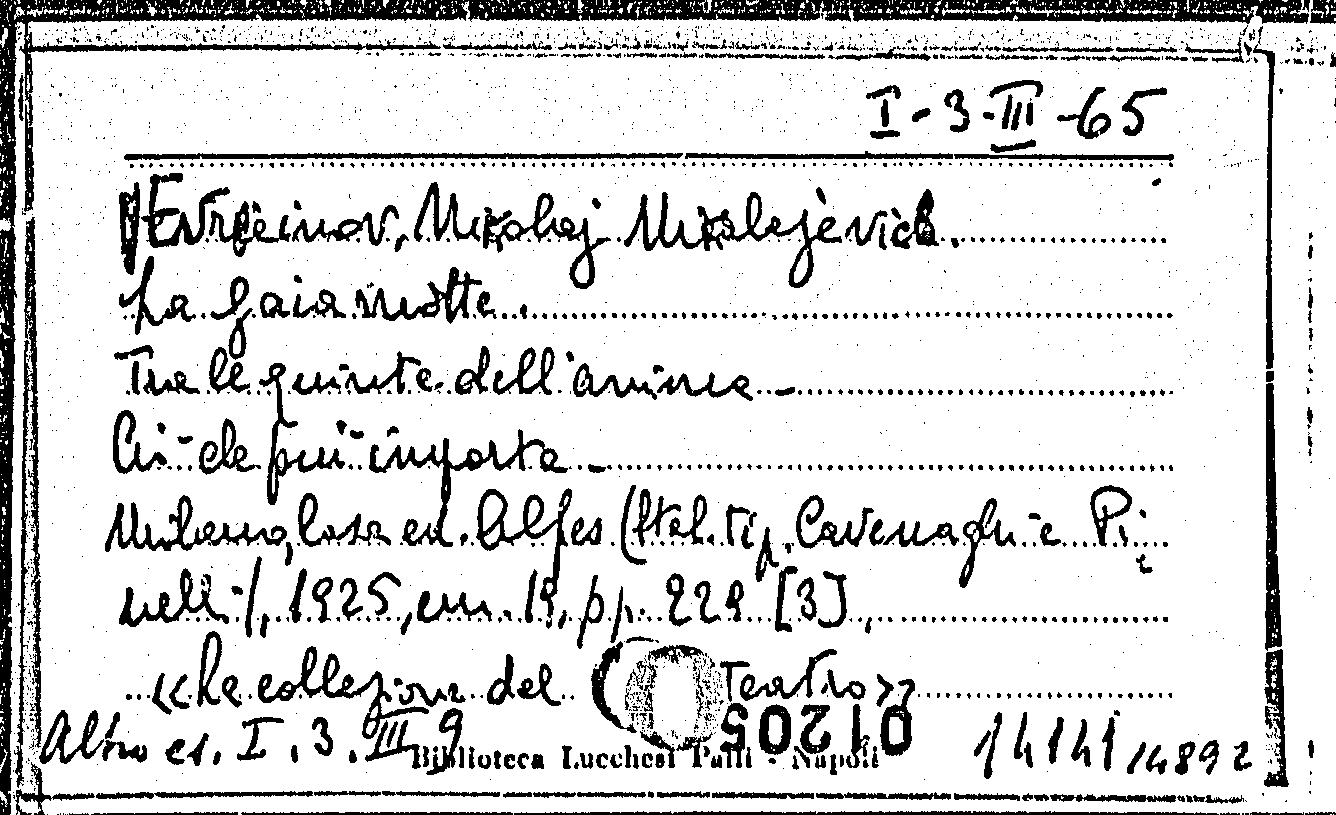 I-3-III-65
Evrèinov, Nikolaj Nikolajèvich.
La gaia morte.
Tra le quinte dell'anima -
Ciò che più importa -
Milano, Casa ed. Alpes (Stab. tip. Cavenaghi e Pi
nelli), 1925, cm. 19, pp. 229 [3],
«La collezione del Teatro»
01205
Altro es. I. 3. III 9
Biblioteca Lucchesi Palli - Napoli
14141/14892